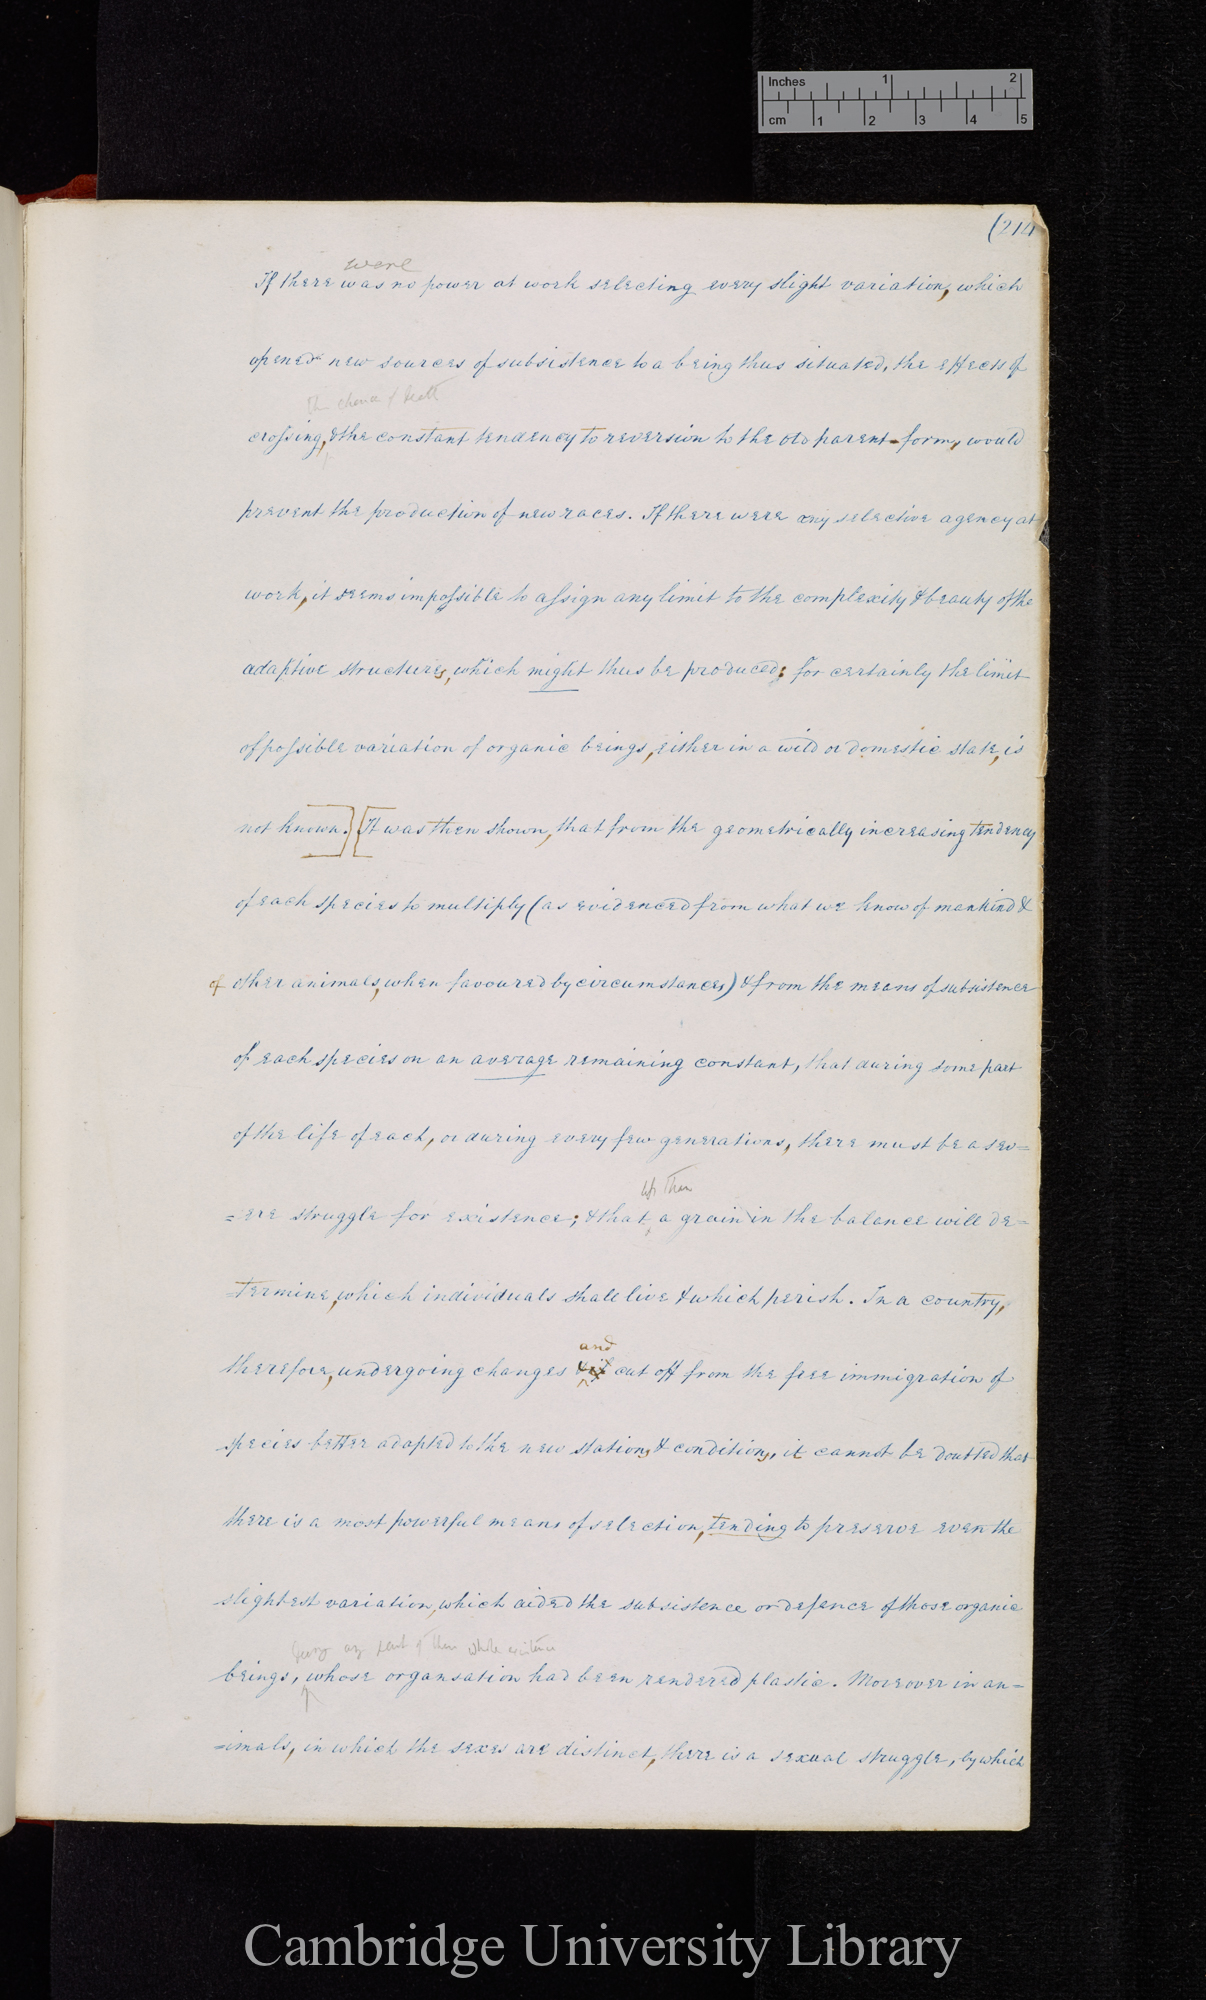 Inches 1 2
cm 1 2 3 4 5
(214
were
If there was no power at work selecting every slight variation, which
opened new sources of subsistence to a being thus situated, the effects of
the chance of death
crossing, & the constant tendency to reversion to the old parent-form, would
prevent the production of new races. If there were any selective agency at
work, it seems impossible to assign any limit to the complexity & beauty of the
adaptive structures, which might thus be produced; for certainly the limit
of possible variation of organic beings, either in a wild or domestic state, is
not known.] [It was then shown, that from the geometrically increasing tendency
of each species to multiply (as evidenced from what we know of mankind &
of other animals, when favoured by circumstances) & from the means of subsistence
of each species on an average remaining constant, that during some part
of the life of each, or during every few generations, there must be a sev=
less than
=ere struggle for existence; & that a grain in the balance will de=
=termine, which individuals shall live & which perish. In a country,
and
therefore, undergoing changes cut off from the free immigration of
species better adapted to the new station & conditions, it cannot be doubted that
there is a most powerful means of selection, tending to preserve even the
slightest variation, which aided the subsistence or defence of those organic
during any part of their whole existence
beings, whose organsation had been rendered plastic. Moreover in an=
=imals, in which the sexes are distinct, there is a sexual struggle, by which
Cambridge University Library